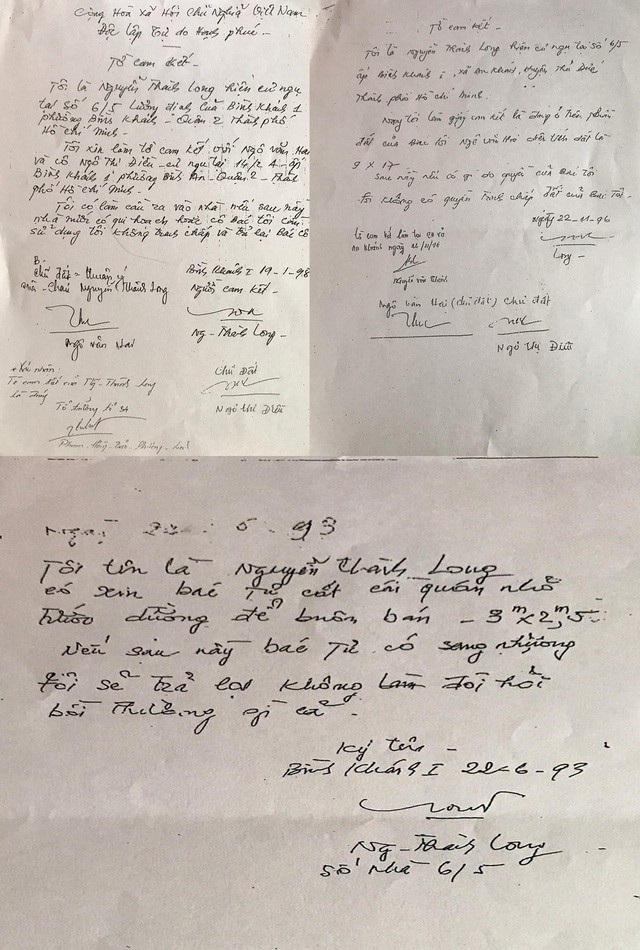 Cộng Hòa Xã Hội Chủ Nghĩa Việt Nam
Độc lập Tự do Hạnh phúc -
Tờ cam kết -
Tôi là Nguyễn Thành Long hiện cư ngụ
tại số 6/5 Lương định Của Bình Khánh 1
phường Bình Khánh - Quận 2 Thành phố
Hồ chí Minh -
Tôi xin làm tờ cam kết với Ngô Văn Hai
và cô Ngô Thị Điều cư ngụ tại ấp
Bình Khánh 1 phường Bình An - Quận 2 - Thành
phố Hồ Chí Minh -
Tôi có làm cầu ra vào nhà nếu sau này
nhà nước có qui hoạch hoặc cô Bác tôi cần
sử dụng tôi không tranh chấp và trả lại Bác cô
Bình Khánh I 19-1-98
Người cam kết -
Ngô văn Hai
Ng - Thành Long -
Xác nhận:
Tờ cam kết của Ng - Thành Long
là đúng
Tổ trưởng tổ 34
Chủ Đất
Ngô Thị Điều
Tờ cam kết -
Tôi là Nguyễn Thành Long hiện cư ngụ tại số 6/5
ấp Bình Khánh I, xã An Khánh, Huyện Thủ Đức
Thành phố Hồ Chí Minh -
Nay tôi làm giấy cam kết là đang ở trên phần
đất của Bác tôi Ngô văn Hai diện tích đất là
9 x 17
sau này nếu có gì do quyền của Bác tôi
tôi không có quyền tranh chấp đất của Bác Tôi -
Ngày 22-11-96
Long -
An Khánh ngày
Ngô văn Hai (chủ đất) Chủ đất
Ngô Thị Điều
Ngày 22 6 - 93
Tôi tên là Nguyễn Thành Long
có xin bác Tư cất cái quán nhỏ
trước đường để buôn bán - 3m x 2m,5
Nếu sau này bác Tư có sang nhượng
tôi sẽ trả lại không làm đòi hỏi
bồi thường gì cả -
Ký tên -
Bình Khánh I 22-6-93
Ng - Thành Long
số nhà 6/5